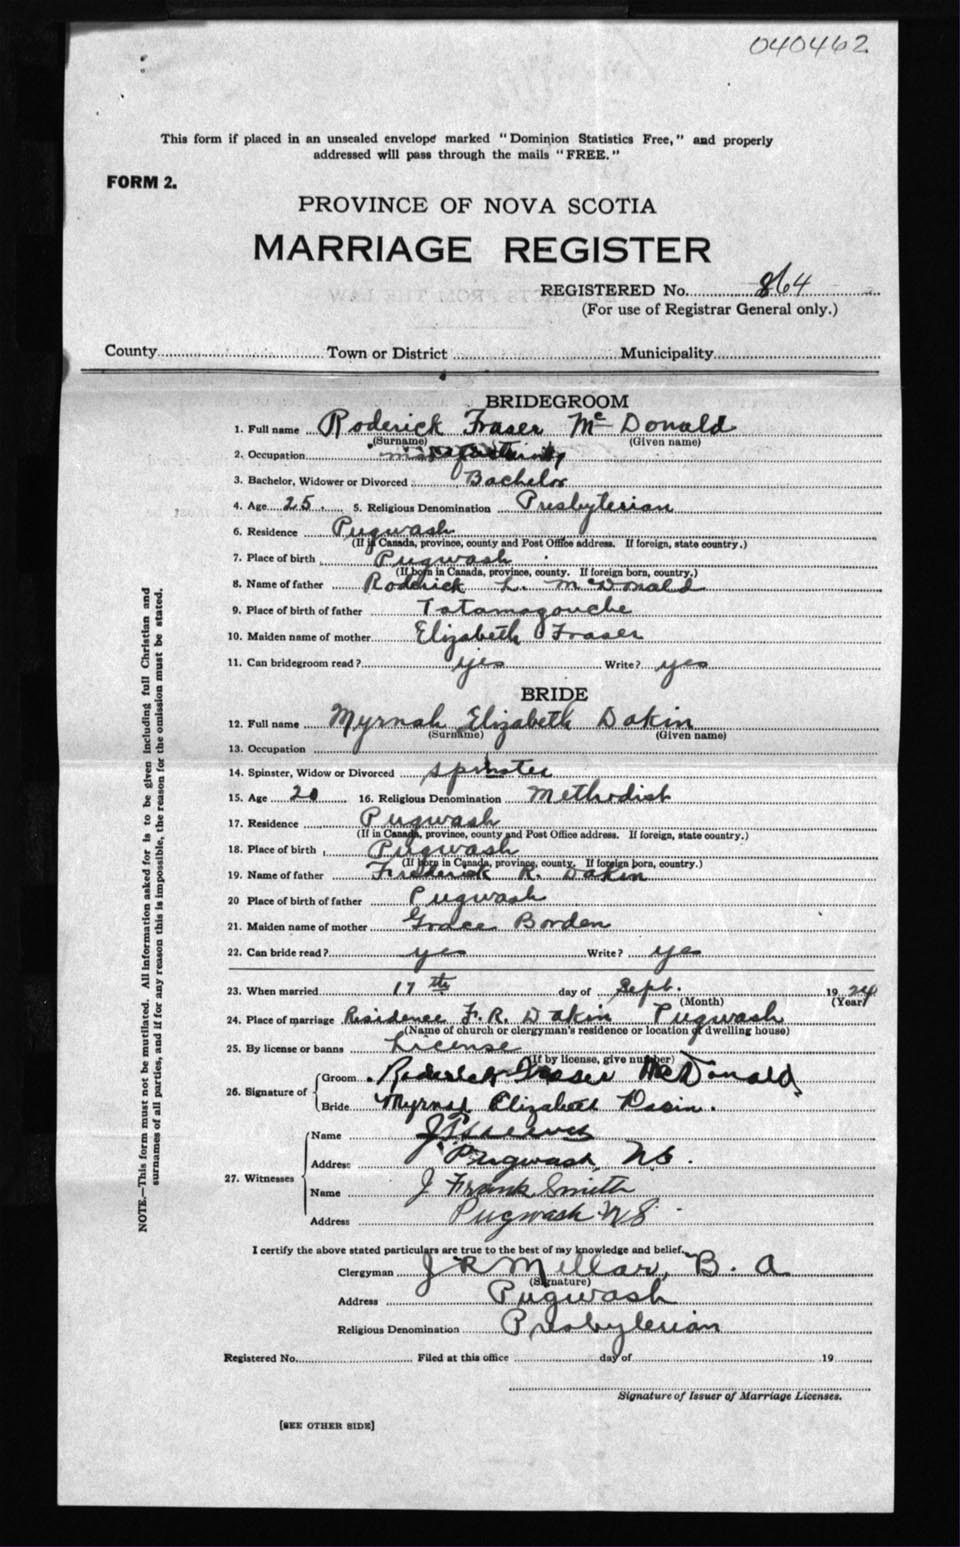 040462
This form if placed in an unsealed envelope marked "Dominion Statistics Free," and properly
addressed will pass through the mails "FREE."
FORM 2.
PROVINCE OF NOVA SCOTIA
MARRIAGE REGISTER
REGISTERED No. 864
(For use of Registrar General only.)
County Town or District Municipality
BRIDEGROOM
1. Full name Roderick Fraser McDonald
(Surname) (Given name)
2. Occupation
3. Bachelor, Widower or Divorced Bachelor
4. Age 25 5. Religious Denomination Presbyterian
6. Residence Pugwash
(If in Canada, province, county and Post Office address. If foreign, state country.)
7. Place of birth Pugwash
(If born in Canada, province, county. If foreign born, country.)
8. Name of father Roderick L. McDonald
9. Place of birth of father Tatamagouche
10. Maiden name of mother Elizabeth Fraser
11. Can bridegroom read? yes Write? yes
BRIDE
12. Full name Myrnah Elizabeth Dakin
(Surname) (Given name)
13. Occupation
14. Spinster, Widow or Divorced spinster
15. Age 20 16. Religious Denomination Methodist
17. Residence Pugwash
(If in Canada, province, county and Post Office address. If foreign, state country.)
18. Place of birth Pugwash
(If born in Canada, province, county. If foreign born, country.)
19. Name of father Frederick R. Dakin
20 Place of birth of father Pugwash
21. Maiden name of mother Grace Borden
22. Can bride read? yes Write? yes
23. When married 17th day of Sept. 1924
(Month) (Year)
24. Place of marriage Residence F. R. Dakin Pugwash
(Name of church or clergyman's residence or location of dwelling house)
25. By license or banns License
(If by license, give number)
26. Signature of Groom Roderick Fraser McDonald
Bride Myrnah Elizabeth Dakin.
27. Witnesses
Name
Address Pugwash, N.S.
Name J Frank Smith
Address Pugwash N S
I certify the above stated particulars are true to the best of my knowledge and belief.
Clergyman J R Millar, B. A
(Signature)
Address Pugwash
Religious Denomination Presbyterian
Registered No. Filed at this office day of 19
Signature of Issuer of Marriage Licenses.
[SEE OTHER SIDE]
NOTE.—This form must not be mutilated. All information asked for is to be given including full Christian and
surnames of all parties, and if for any reason this is impossible, the reason for the omission must be stated.